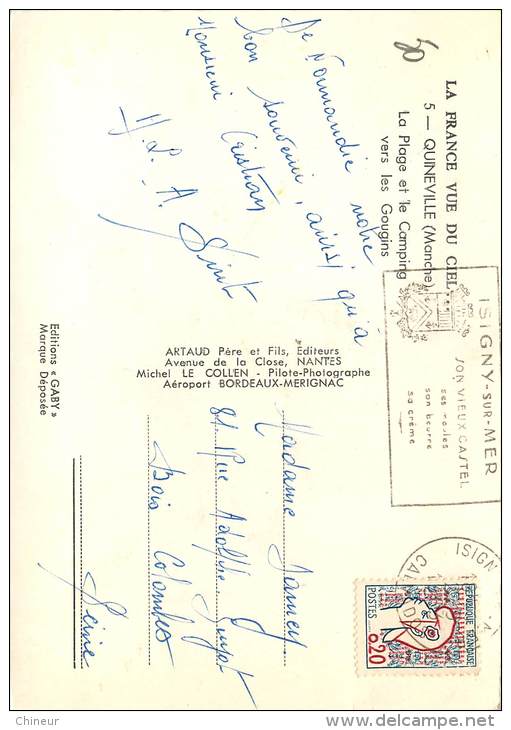 LA FRANCE VUE DU CIEL...
5 — QUINEVILLE (Manche)
La Plage et le Camping
vers les Gougins
50
De Normandie notre
bon souvenir, ainsi qu'à
Monsieur Cristian
ISIGNY-SUR-MER
SON VIEUX CASTEL
ses moules
son beurre
sa crème
ISIGN
CALVADOS
REPUBLIQUE FRANÇAISE
POSTES
0,20
ARTAUD Père et Fils, Editeurs
Avenue de la Close, NANTES
Michel LE COLLEN - Pilote-Photographe
Aéroport BORDEAUX-MERIGNAC
Madame
81 Rue Adolphe
Bois Colombes
Seine
Editions « GABY »
Marque Déposée
Chineur
www.delcampe.net